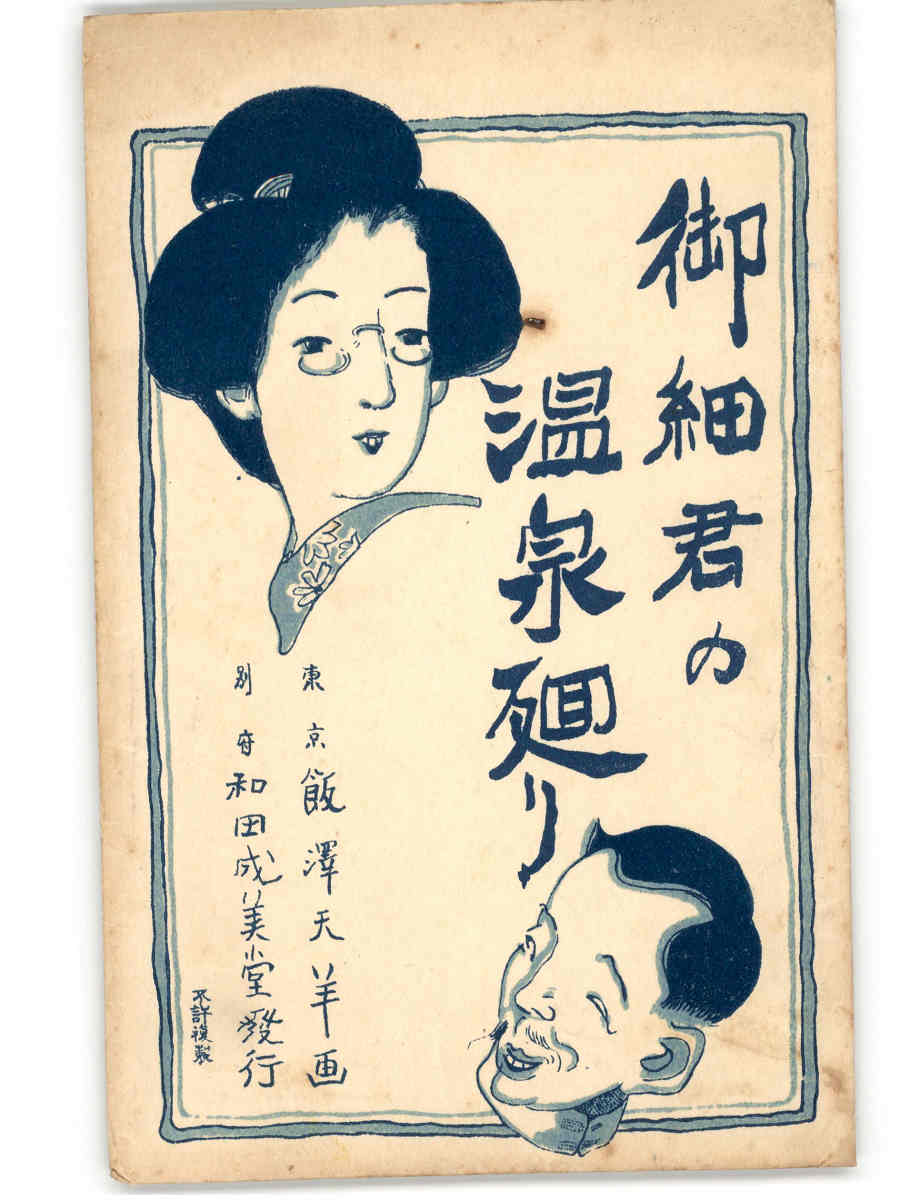 御細君の
温泉廻り
東京飯澤天羊画
別府和田成美堂發行
不許複製